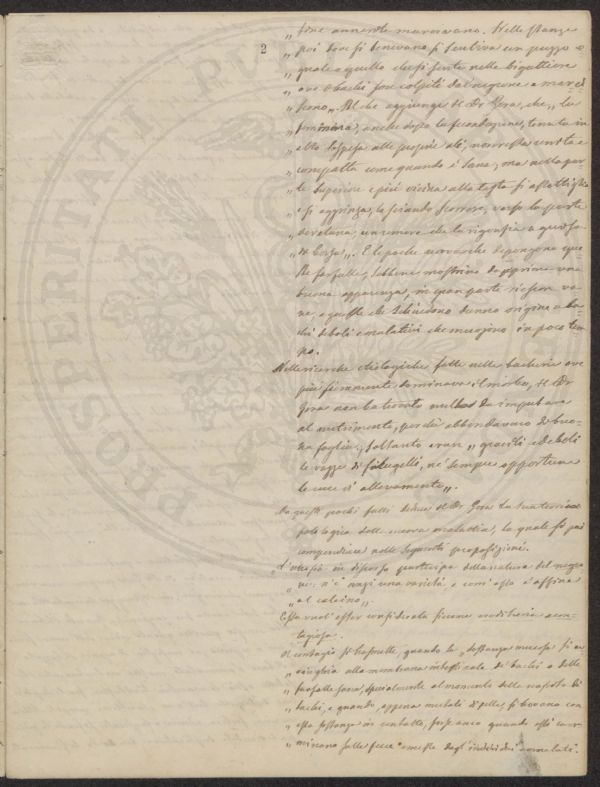 „ fone annerite marcivano. Nelle stanze
2
„ poi dove si tenevano si sentiva un puzzo e-
„ guale a quello che si sente nelle bigattiere
„ ove i bachi sono colpiti dal negrone e marci-
„ scono„. Al che aggiunge il Dr Gera, che „ la
„ femmina, anche dopo la fecondazione, tenuta in
„ alto sospesa alle proprie ali, non resta unita e
„ compatta come quando è sana; ma nella par-
„ te superiore e più vicina alla testa si
„ e si aggrinza, lasciando scorrere, verso la parte
„ deretana, un umore che la rigonfia a guisa
„ di borsa„. E le poche uova che depongono que-
ste farfalle, sebbene mostrino dapprima una
buona apparenza, in gran parte riescon va-
ne, e quelle che schiudono danno origine a ba-
chi deboli e malaticci che muojono in poco tem-
po.
Nelle ricerche etiologiche fatte nelle bacherie ove
più fieramente dominava il morbo, il Dr
Gera non ha trovato nulla da imputare
al nutrimento, perchè abbondavano di buo-
na foglia; soltanto eran „ gracili e deboli
le razze di filugelli, nè sempre opportune
le cure d'allevamento„.
Da questi pochi fatti deduce il Dr Gera la sua teorica
patologica della nuova malattia, la quale si può
compendiare nelle seguenti proposizioni.
in discorso partecipa della natura del negro-
„ ne; n'è anzi una varietà, e com'esso è affine
„ al calcino„.
Essa vuol esser considerata siccome ereditaria e con-
tagiosa.
Il contagio si trasmette, quando la „ sostanza mucosa si ac-
„ alla membrana intestinale de' bachi o delle
„ farfalle sane, specialmente al momento della nascita di
„ bachi, e quando, appena mutati di pelle, si trovano con
„ essa sostanza in contatto, forse anco quando essi cam-
„ minano sulle fecce emesse dagli individui ammalati.